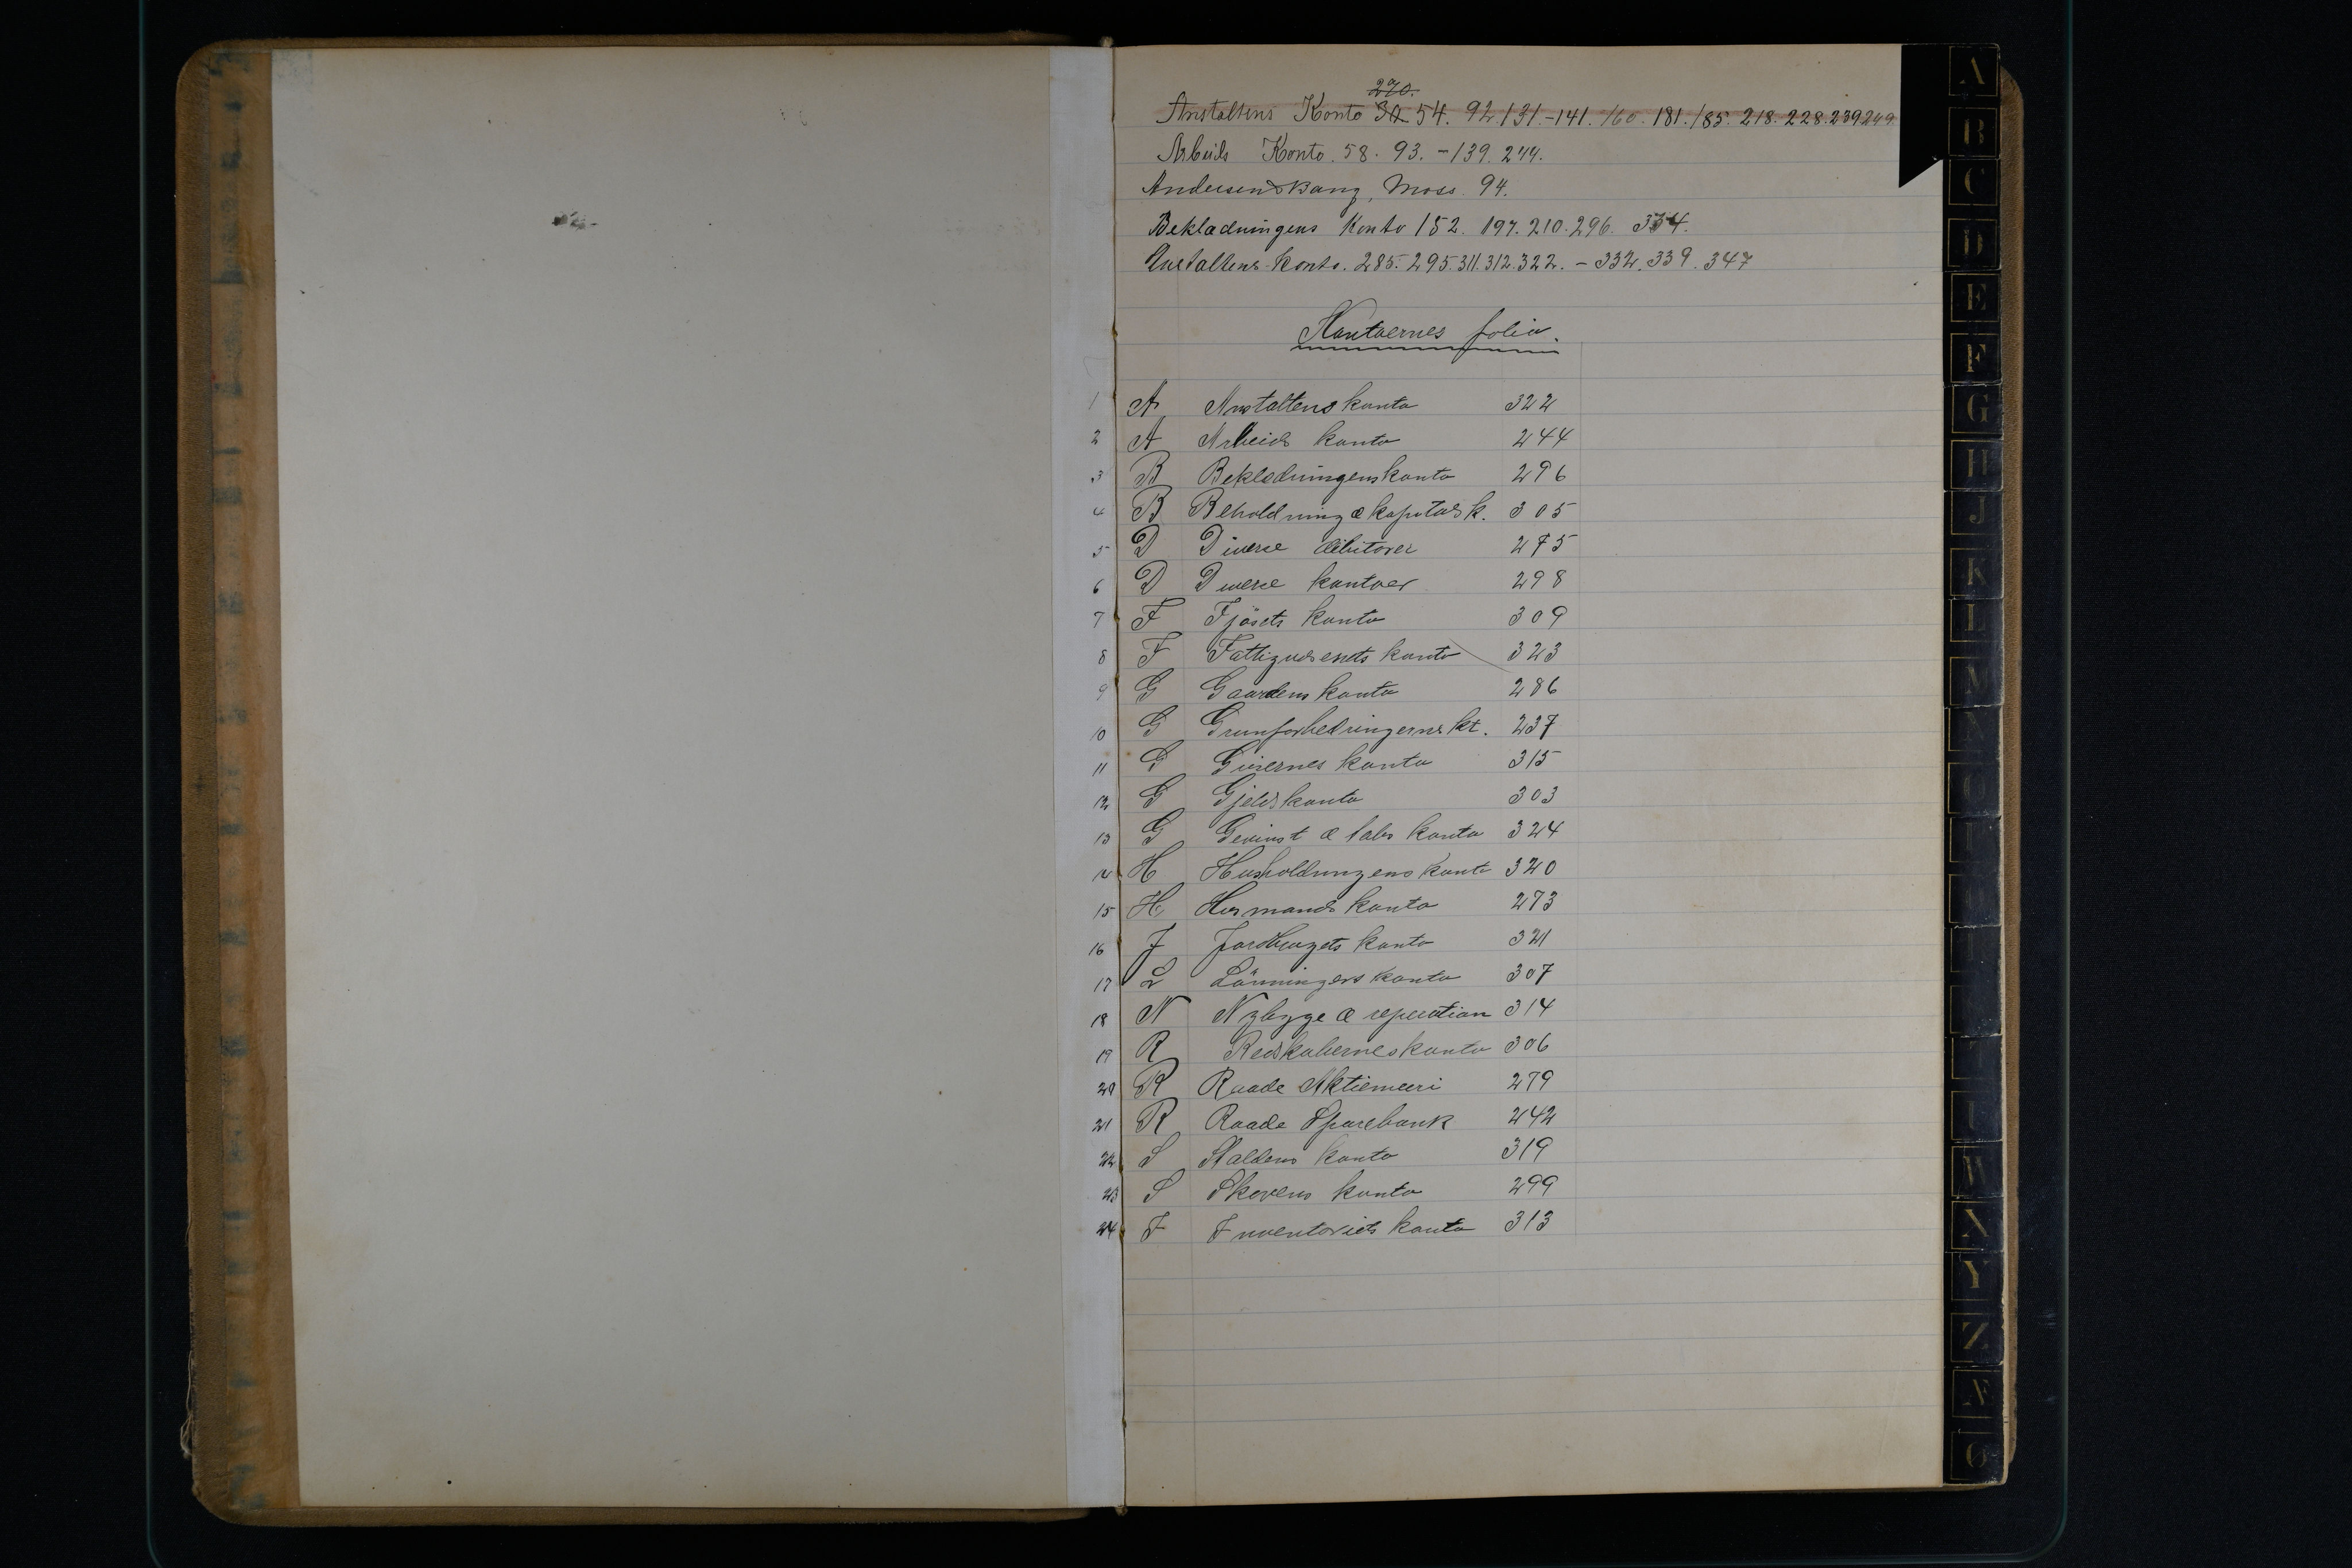 270.
Anstaltens Konto 30 54. 92 131.-141. 160. 181. 185. 218. 228. 239 249
Arbeids Konto. 58. 93. - 139. 244.
Andersen & Bang, Moss. 94.
Beklædningens Konto 152. 197. 210. 296. 334.
Anstaltens Konto. 285. 295. 311. 312. 322. - 332. 339. 347
Kontoernes folio.
1 A Anstaltens konto 322
2 A Arbeids konto 244
3 B Beklædningens konto 296
4 B Beholdning & kapitals k. 305
5 D Diverse debitorer 275
6 D Diverse kontoer 298
7 F Fjösets konto 309
8 F Fattigvæsenets konto 323
9 G Gaardens konto 286
10 G Grunforbedringernes kt. 237
11 G Grisernes konto 315
12 G Gjelds konto 303
13 G Gevinst & tabs konto 324
14 H Husholdningens konto 320
15 H Husmands konto 273
16 J Jordbrugets konto 321
17 L Lönningers konto 307
18 N Nybygge & reperation 314
19 R Redskabernes konto 306
20 R Raade Aktiemeieri 279
21 R Raade Sparebank 242
22 S Staldens konto 319
23 S Skovens konto 299
24 I Inventoriets konto 313
A
B
C
D
E
F
G
H
J
K
L
M
N
O
P
U
W
X
Y
Z
Æ
Ö